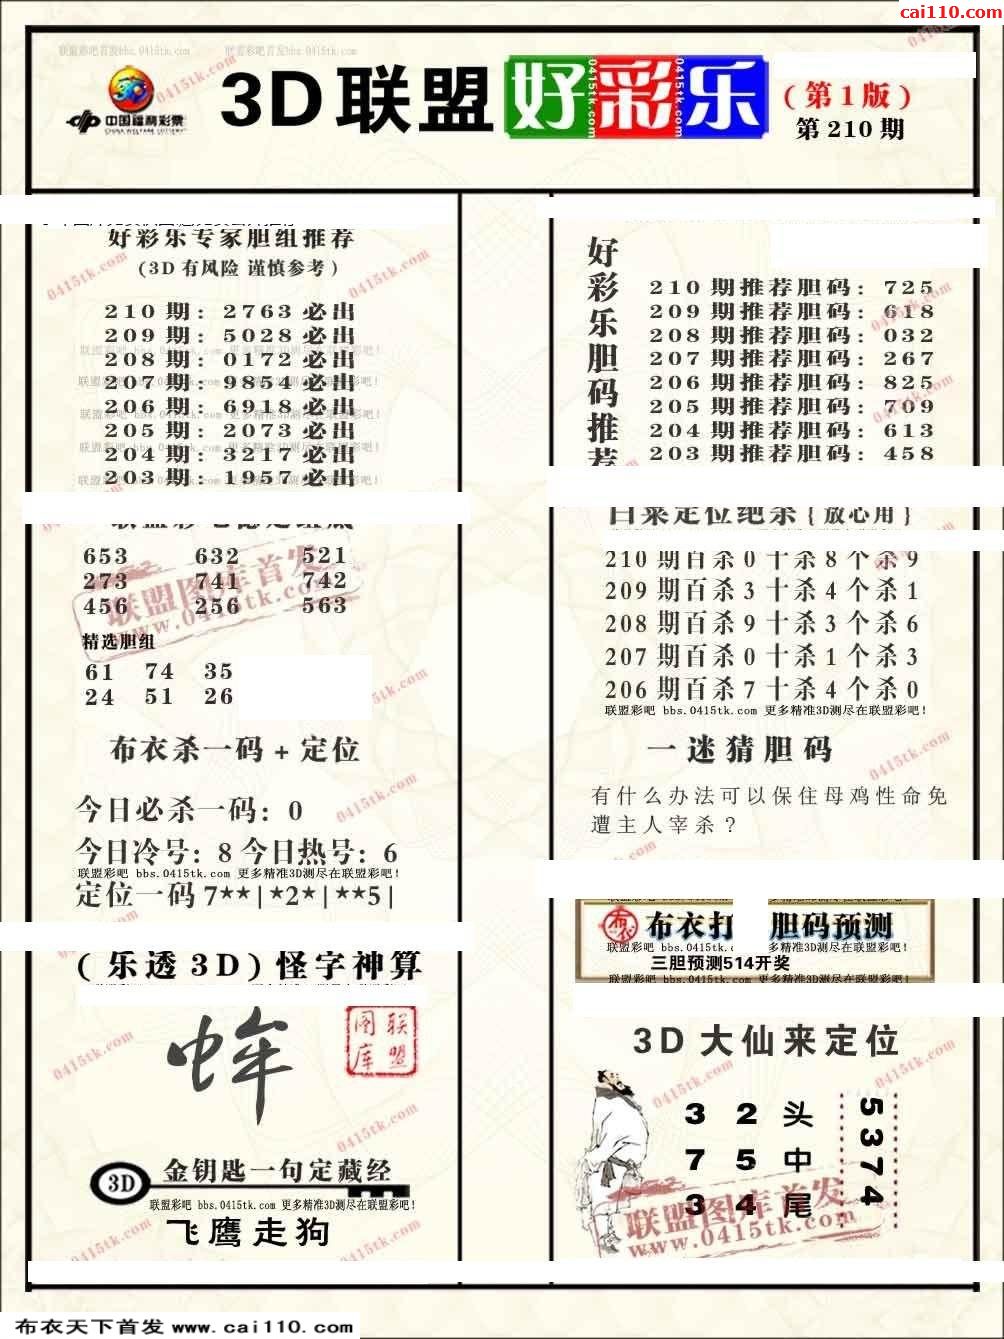 cai110.com
联盟彩吧首发bbs.0415tk.com
中国福利彩票
CHINA WELFARE LOTTERY
3D联盟好彩乐
0415tk.com
0415tk.com
(第1版)
第210期
好彩乐专家胆组推荐
(3D有风险 谨慎参考)
210期: 2763必出
209期: 5028必出
208期: 0172必出
207期: 9854必出
206期: 6918必出
205期: 2073必出
204期: 3217必出
203期: 1957必出
653 632 521
273 741 742
456 256 563
联盟图库首发
www.0415tk.com
精选胆组
61 74 35
24 51 26
布衣杀一码+定位
今日必杀一码: 0
今日冷号: 8 今日热号: 6
联盟彩吧 bbs.0415tk.com 更多精准3D测尽在联盟彩吧!
定位一码 7**|*2*|**5|
(乐透3D)怪字神算
联盟图库
3D
金钥匙一句定藏经
联盟彩吧 bbs.0415tk.com 更多精准3D测尽在联盟彩吧!
飞鹰走狗
好彩乐胆码推荐
210期推荐胆码: 725
209期推荐胆码: 618
208期推荐胆码: 032
207期推荐胆码: 267
206期推荐胆码: 825
205期推荐胆码: 709
204期推荐胆码: 613
203期推荐胆码: 458
白菜定位绝杀{放心用}
210期百杀0十杀8个杀9
209期百杀3十杀4个杀1
208期百杀9十杀3个杀6
207期百杀0十杀1个杀3
206期百杀7十杀4个杀0
联盟彩吧 bbs.0415tk.com 更多精准3D测尽在联盟彩吧!
一迷猜胆码
有什么办法可以保住母鸡性命免
遭主人宰杀?
布衣
布衣打 胆码预测
三胆预测514开奖
联盟彩吧 bbs.0415tk.com 更多精准3D测尽在联盟彩吧!
3D大仙来定位
3 2 头
7 5 中
3 4 尾
5374
联盟图库首发
www.0415tk.com
布衣天下首发 www.cai110.com